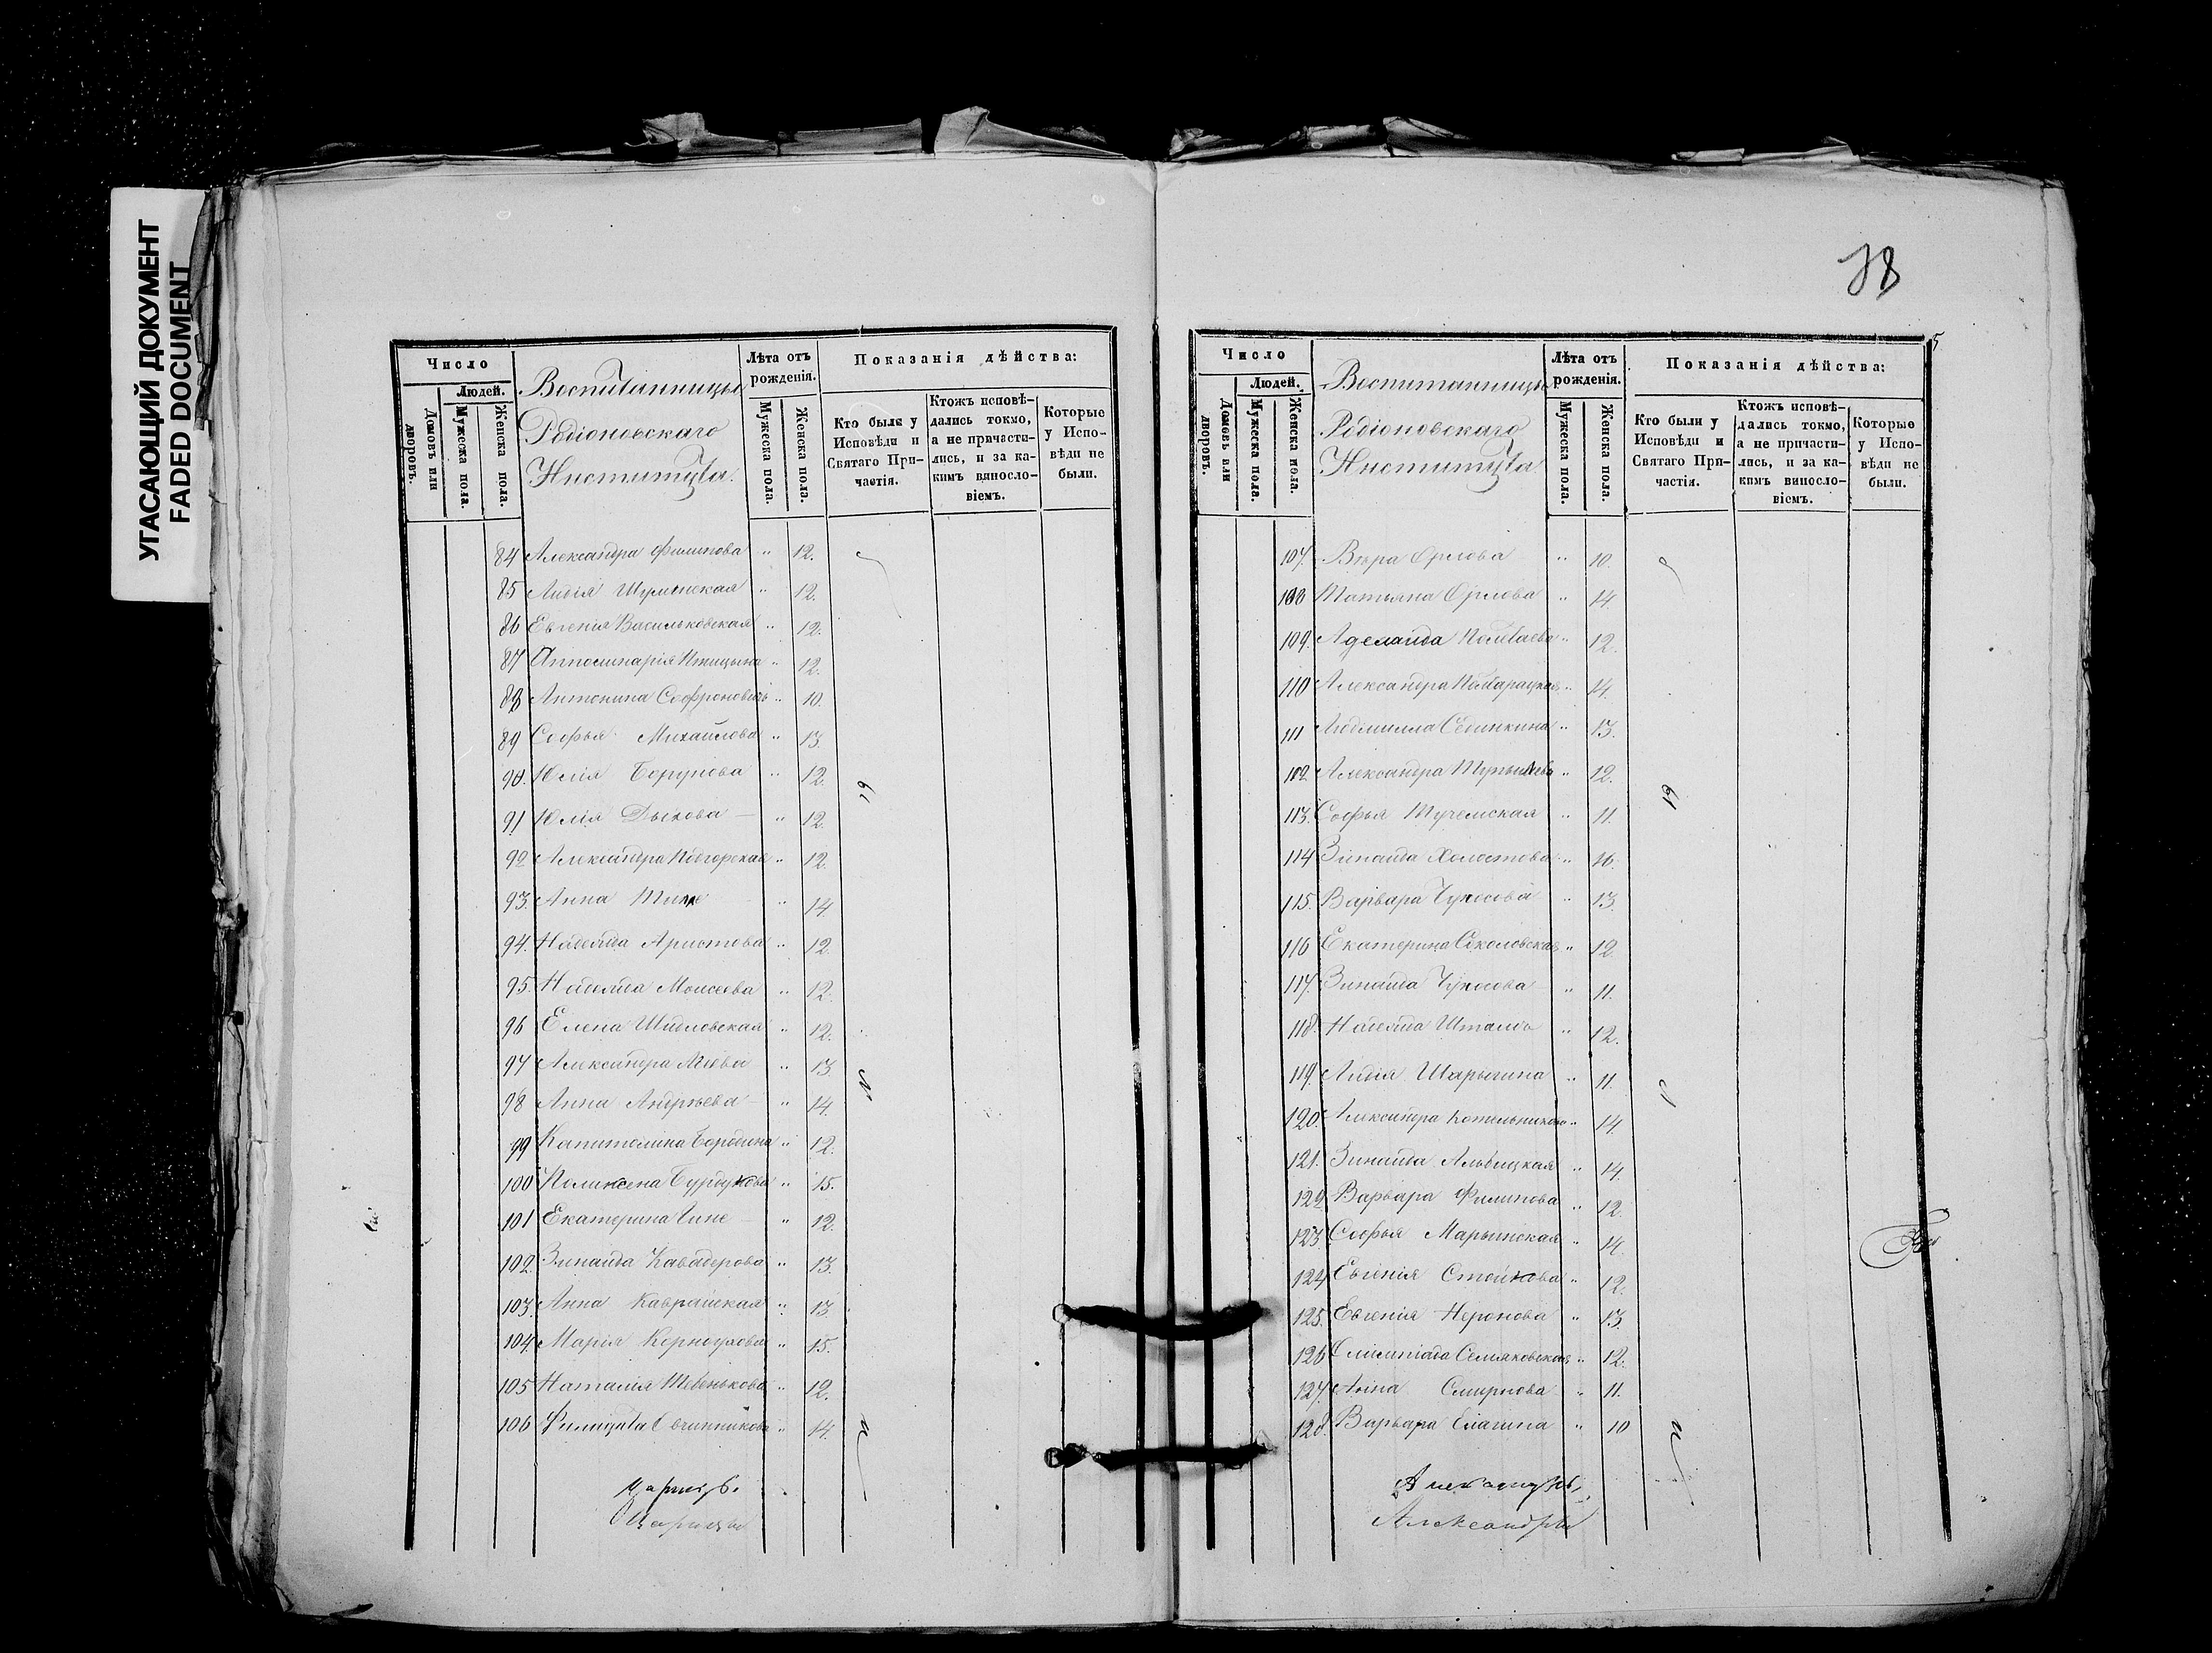 УГАСАЮЩИЙ ДОКУМЕНТ
FADED DOCUMENT
Число
Людей.
Домовъ или дворовъ.
Мужеска пола.
Женска пола.
Воспитанницы
Родіоновскаго
Института.
Лѣта отъ рожденія.
Мужеска пола.
Женска пола.
Показанія дѣйства:
Кто были у Исповѣди и Святаго Причастія.
Ктожъ исповѣдались токмо, а не причастились, и за какимъ винословіемъ.
Которые у Исповѣди не были.
84 Александра Филипова " 12.
85 Лидія Шуменская " 12.
86 Евгенія Васильковская " 12.
87 Апполинарія Птицына " 12.
88 Антонина Софроновичь " 10.
89 Софья Михайлова " 13.
90. Юлія " 12.
91 Юлія Дыхова — " 12.
92 Александра Подгорская " 12.
93. Анна " 14
94. Надежда Аристова " 12.
95. Надежда Моисеева " 12.
96 Елена Шидловская " 12.
97 Александра " 13.
98 Анна Андреева — " 14.
99 Капитолина Бородина " 12.
100 Поликсена " 15.
101 Екатерина " 12.
102. Зинаида " 13.
103. Анна Каврайская " 13.
104. Марія Корноухова " 15.
105 Наталія " 12.
106 Овчинникова " 14.
Были
Царицы
78
5.
Число
Людей.
Домовъ или дворовъ.
Мужеска пола.
Женска пола.
Воспитанницы
Родіоновскаго
Института
Лѣта отъ рожденія.
Мужеска пола.
Женска пола.
Показанія дѣйства:
Кто были у Исповѣди и Святаго Причастія.
Ктожъ исповѣдались токмо, а не причастились, и за какимъ винословіемъ.
Которые у Исповѣди не были.
107. Вѣра Орлова " 10.
108 Татьяна Орлова " 14.
109. Аделаида " 12.
110 Александра " 14.
111 Людмилла " 13.
112 Александра " 12.
113. Софья " 11.
114 Зинаида Холостова " 16.
115. Варвара Чуносова " 13.
116 Екатерина Соколовская " 12.
117. Зинаида Чуносова " 11.
118. Надежда " 12.
119. Лидія Шарыгина " 11.
120. Александра Котельникова " 14.
121. Зинаида Альбицкая " 14.
122 Варвара Филипова " 12.
123 Софья Марьинская " 14.
124 Евгенія Стойкова " 12.
125. Евгенія Неронова " 13.
126 Олимпіада " 12.
127. Анна Смирнова " 11.
128. Варвара Елагина " 10
Были
Александры